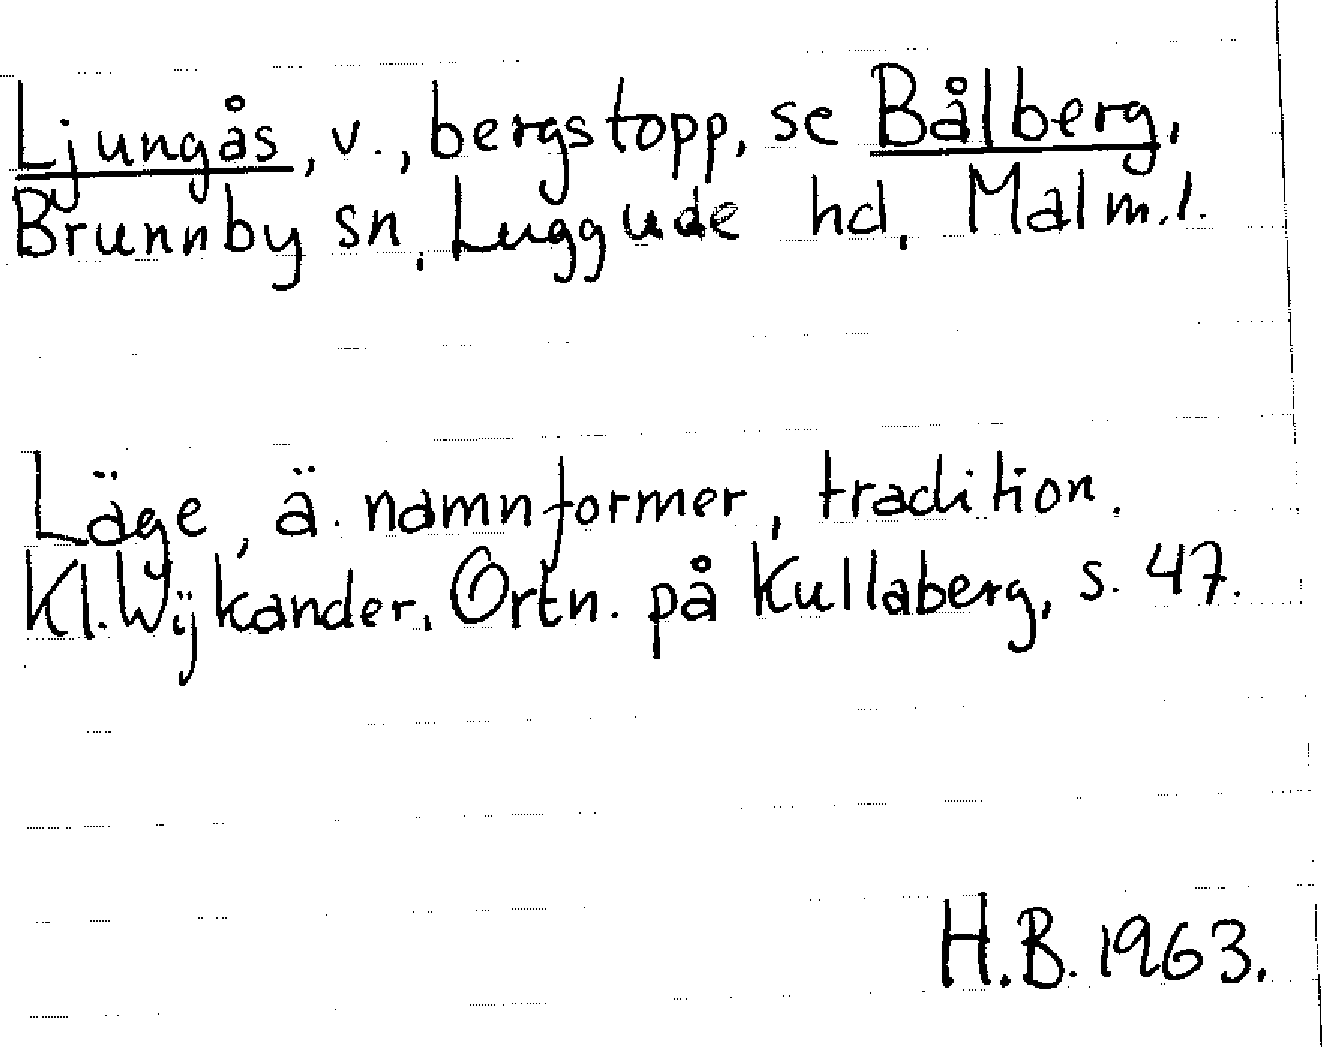 Ljungås, v., bergstopp, se Bålberg,
Brunnby sn, Luggude hd, Malm.l.
Läge, ä. namnformer, tradition.
Kl. Wijkander, Ortn. på Kullaberg, s. 47.
H.B. 1963.